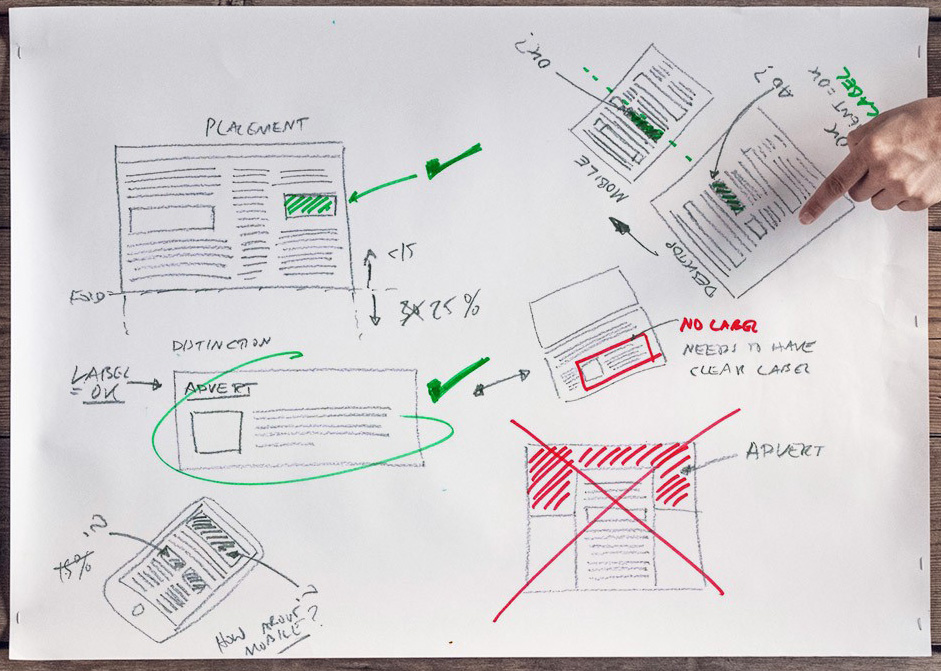 PLACEMENT
<15
FOLD
25%
DISTINCTION
LABEL
= OK
ADVERT
NO LABEL
NEEDS TO HAVE
CLEAR LABEL
ADVERT
OK?
MOBILE
AD?
DESKTOP
LABEL
= OK
OK
15%
?
?
HOW ABOUT
MOBILE?